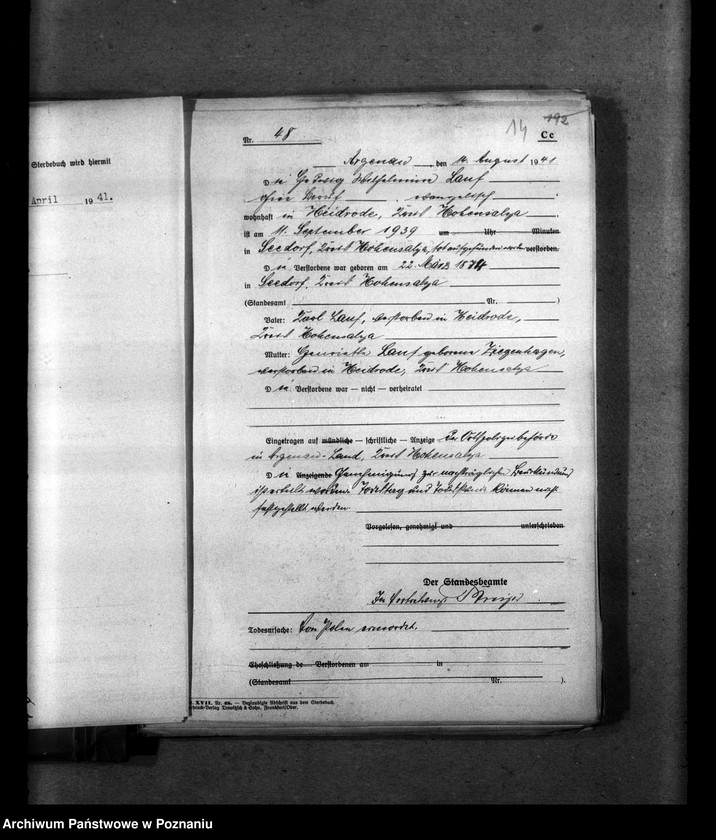 Sterbebuch wird hiermit
April 1941.
14 192
Nr. 48 Cc
Argenau, den 14. August 1941
Die Hedwig Wilhelmine Lauf
ohne Beruf, evangelisch
wohnhaft in Heidrode, Kreis Hohensalza
ist am 11. September 1939 um Uhr Minuten
in Seedorf, Kreis Hohensalza, tot aufgefunden verstorben.
Die Verstorbene war geboren am 22. März 1874
in Seedorf, Kreis Hohensalza
(Standesamt Nr. )
Vater: Karl Lauf, verstorben in Heidrode,
Kreis Hohensalza
Mutter: Henriette Lauf geborene Ziegenhagen,
verstorben in Heidrode, Kreis Hohensalza
Die Verstorbene war — nicht — verheiratet
Eingetragen auf mündliche — schriftliche — Anzeige der Ortspolizeibehörde
in Argenau-Land, Kreis Hohensalza
Die Anzeigende Genehmigung zur nachträglichen Beurkundung
ist erteilt worden. Todestag und Todesstunde können nicht
festgestellt werden
Vorgelesen, genehmigt und unterschrieben
Der Standesbeamte
In Vertretung
Todesursache: Von Polen ermordet.
Eheschließung de Verstorbenen am in
(Standesamt Nr. ).
XVII. Nr. — Beglaubigte Abschrift aus dem Sterbebuch.
Verlag Trowitzsch & Sohn, Frankfurt/Oder.
Archiwum Państwowe w Poznaniu